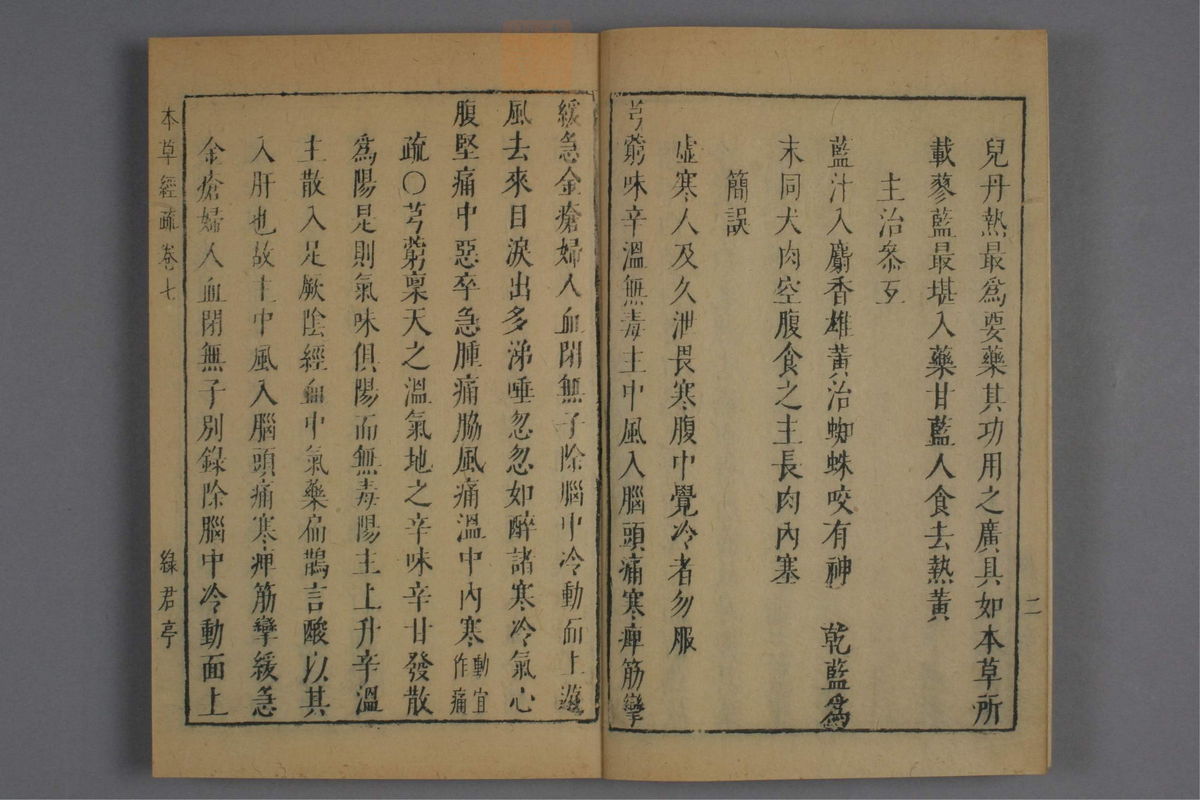 二
兒丹熱最爲要藥其功用之廣具如本草所
載蓼藍最堪入藥甘藍人食去熱黃
主治參互
藍汁入麝香雄黃治蜘蛛咬有神 乾藍爲
末同犬肉空腹食之主長肉內塞
簡誤
虛寒人及久泄畏寒腹中覺冷者勿服
芎藭味辛溫無毒主中風入腦頭痛寒痺筋攣
緩急金瘡婦人血閉無子除腦中冷動面上遊
風去來目淚出多涕唾忽忽如醉諸寒冷氣心
腹堅痛中惡卒急腫痛脇風痛溫中內寒動宜作痛
疏○芎藭稟天之溫氣地之辛味辛甘發散
爲陽是則氣味俱陽而無毒陽主上升辛溫
主散入足厥陰經血中氣藥扁鵲言酸以其
入肝也故主中風入腦頭痛寒痺筋攣緩急
金瘡婦人血閉無子別錄除腦中冷動面上
本草經疏 卷七 綠君亭